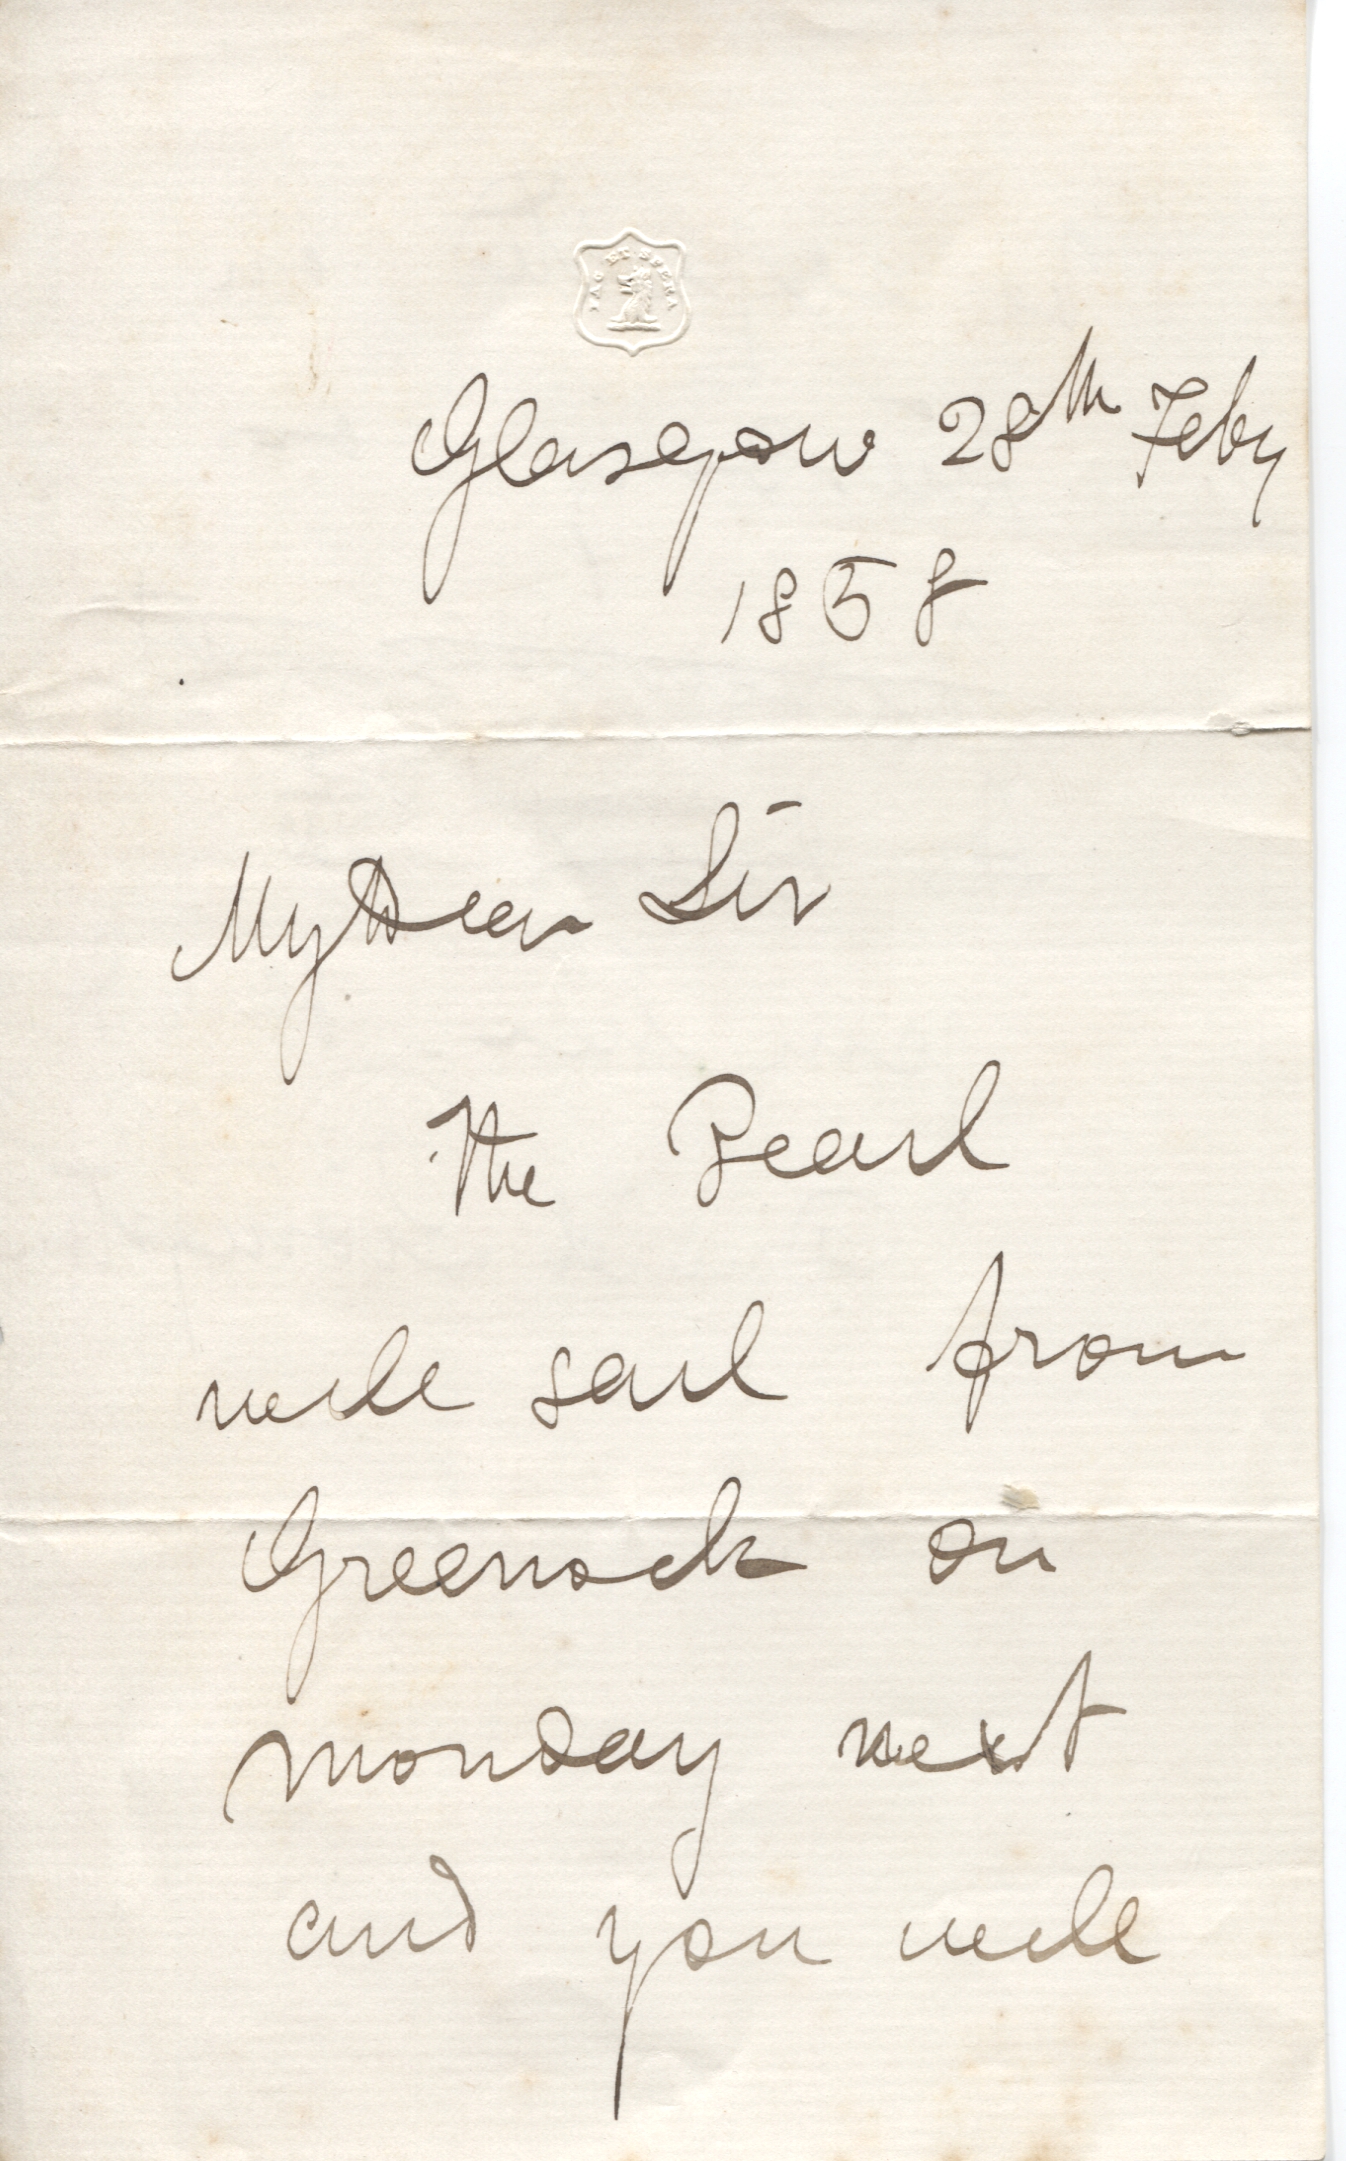 FAC ET SPERA
Glasgow 28th Feby
1858
My Dear Sir
The Pearl
will sail from
Greenock on
Monday next
and you will